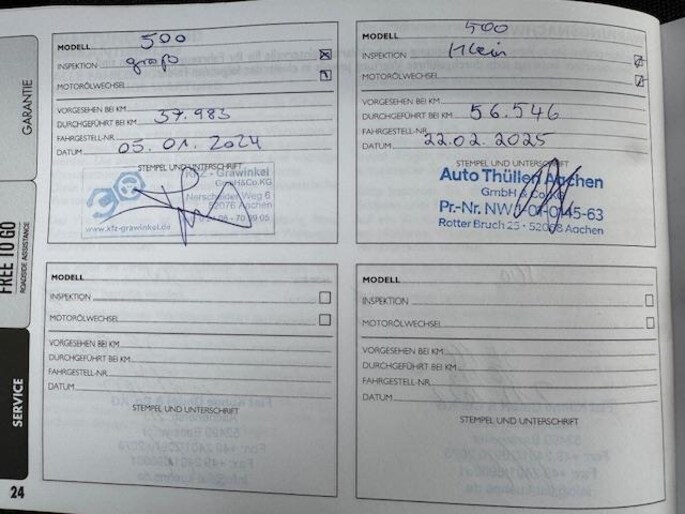 GARANTIE
FREE TO GO
ROADSIDE ASSISTANCE
SERVICE
24
MODELL 500
INSPEKTION groß
MOTORÖLWECHSEL
VORGESEHEN BEI KM
DURCHGEFÜHRT BEI KM 37.983
FAHRGESTELL-NR.
DATUM 05.01.2024
STEMPEL UND UNTERSCHRIFT
KFZ - Grawinkel
GmH&Co.KG
Nerscheider Weg 6
52076 Aachen
05 - 70 39 05
www.kfz-grawinkel.de
MODELL 500
INSPEKTION Klein
MOTORÖLWECHSEL
VORGESEHEN BEI KM
DURCHGEFÜHRT BEI KM 56.546
FAHRGESTELL-NR.
DATUM 22.02.2025
STEMPEL UND UNTERSCHRIFT
Auto Thüllen Aachen
GmbH & Co. KG
Pr.-Nr. NW 1-01-0145-63
Rotter Bruch 25 - 52068 Aachen
MODELL
INSPEKTION
MOTORÖLWECHSEL
VORGESEHEN BEI KM
DURCHGEFÜHRT BEI KM
FAHRGESTELL-NR.
DATUM
STEMPEL UND UNTERSCHRIFT
MODELL
INSPEKTION
MOTORÖLWECHSEL
VORGESEHEN BEI KM
DURCHGEFÜHRT BEI KM
FAHRGESTELL-NR.
DATUM
STEMPEL UND UNTERSCHRIFT